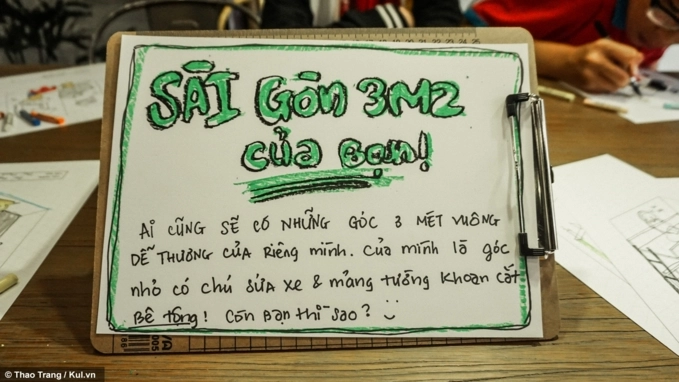 SÀI GÒN 3M2
CỦA BẠN!
Ai CŨNG SẼ CÓ NHỮNG GÓC 3 MÉT VUÔNG
DỄ THƯƠNG CỦA Riêng mình. Của mình là góc
nhỏ có chú sửa xe & mảng tường khoan cắt
Bê tông! Còn bạn thì sao?
© Thao Trang / Kul.vn